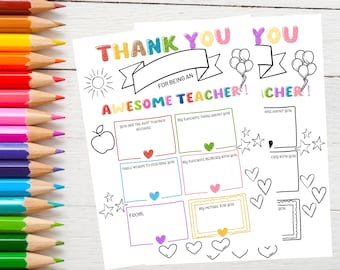 THANK YOU
FOR BEING AN
AWESOME TEACHER!
YOU ARE THE BEST TEACHER BECAUSE:
MY FAVORITE THING ABOUT YOU:
MY FAVORITE MEMORY WITH YOU:
FROM:
MY PICTURE FOR YOU:
YOU
CHER!
ABOUT YOU:
WITH YOU:
YOU: